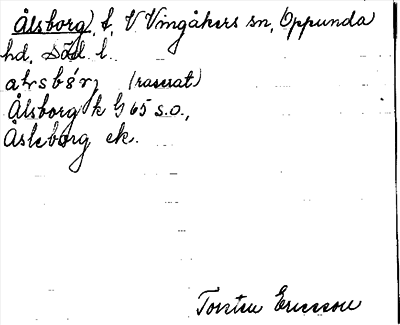 Ålsborg, t, V Vingåkers sn, Oppunda
hd, Södl l.
(raserat)
Ålsborg k G 65 s.o.,
Åsleborg ek.
Torsten Ericsson